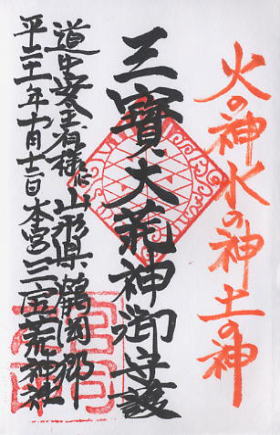 火の神水の神土の神
三寳大荒神御守護
道中安全着様に山形県鶴岡市
平成二十一年十月十二日本宮三宝荒神社